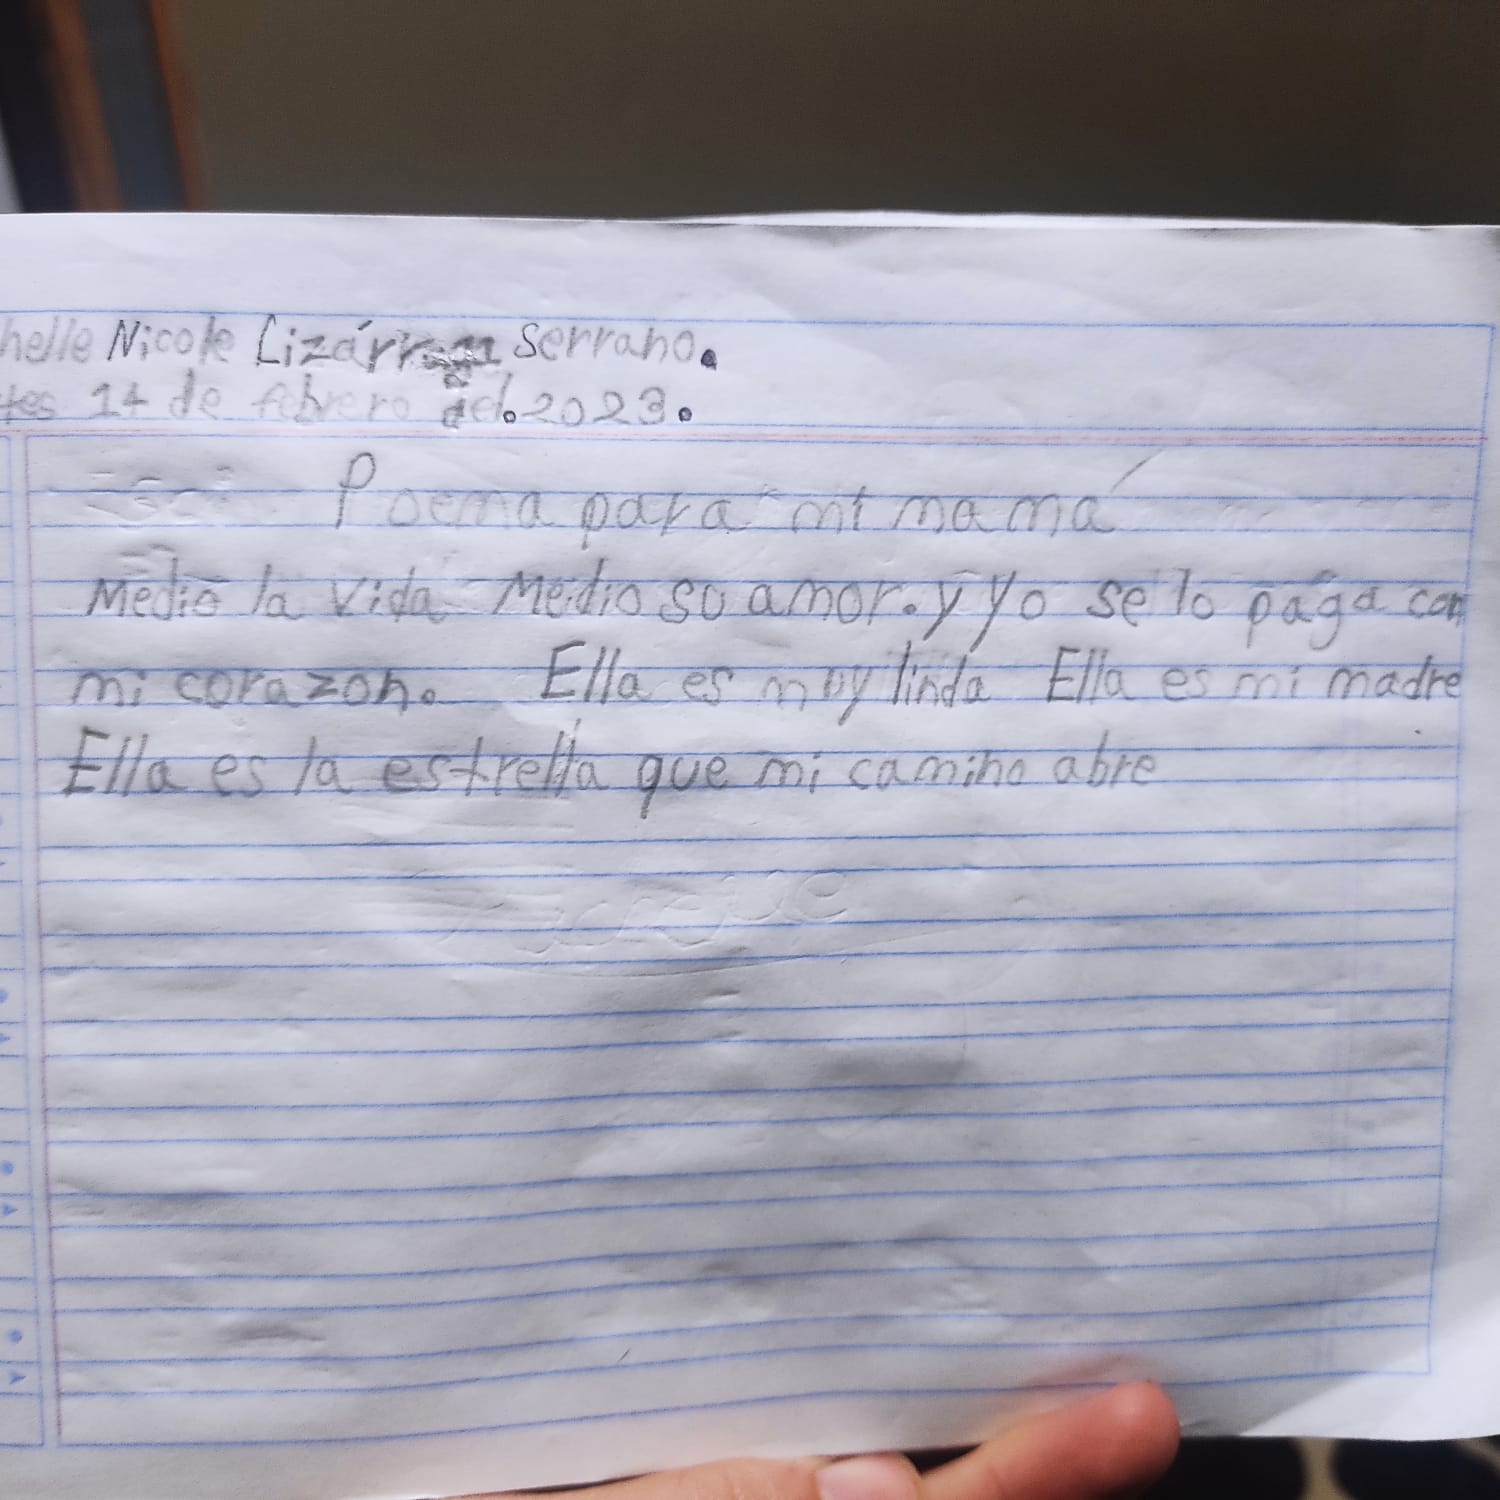 helle Nicole Lizárraga Serrano.
tes 14 de febrero del. 2023.
Poema para mi mamá
Medio la vida Medio su amor. y yo se lo paga con
mi corazon. Ella es muy linda Ella es mi madre
Ella es la estrella que mi camino abre